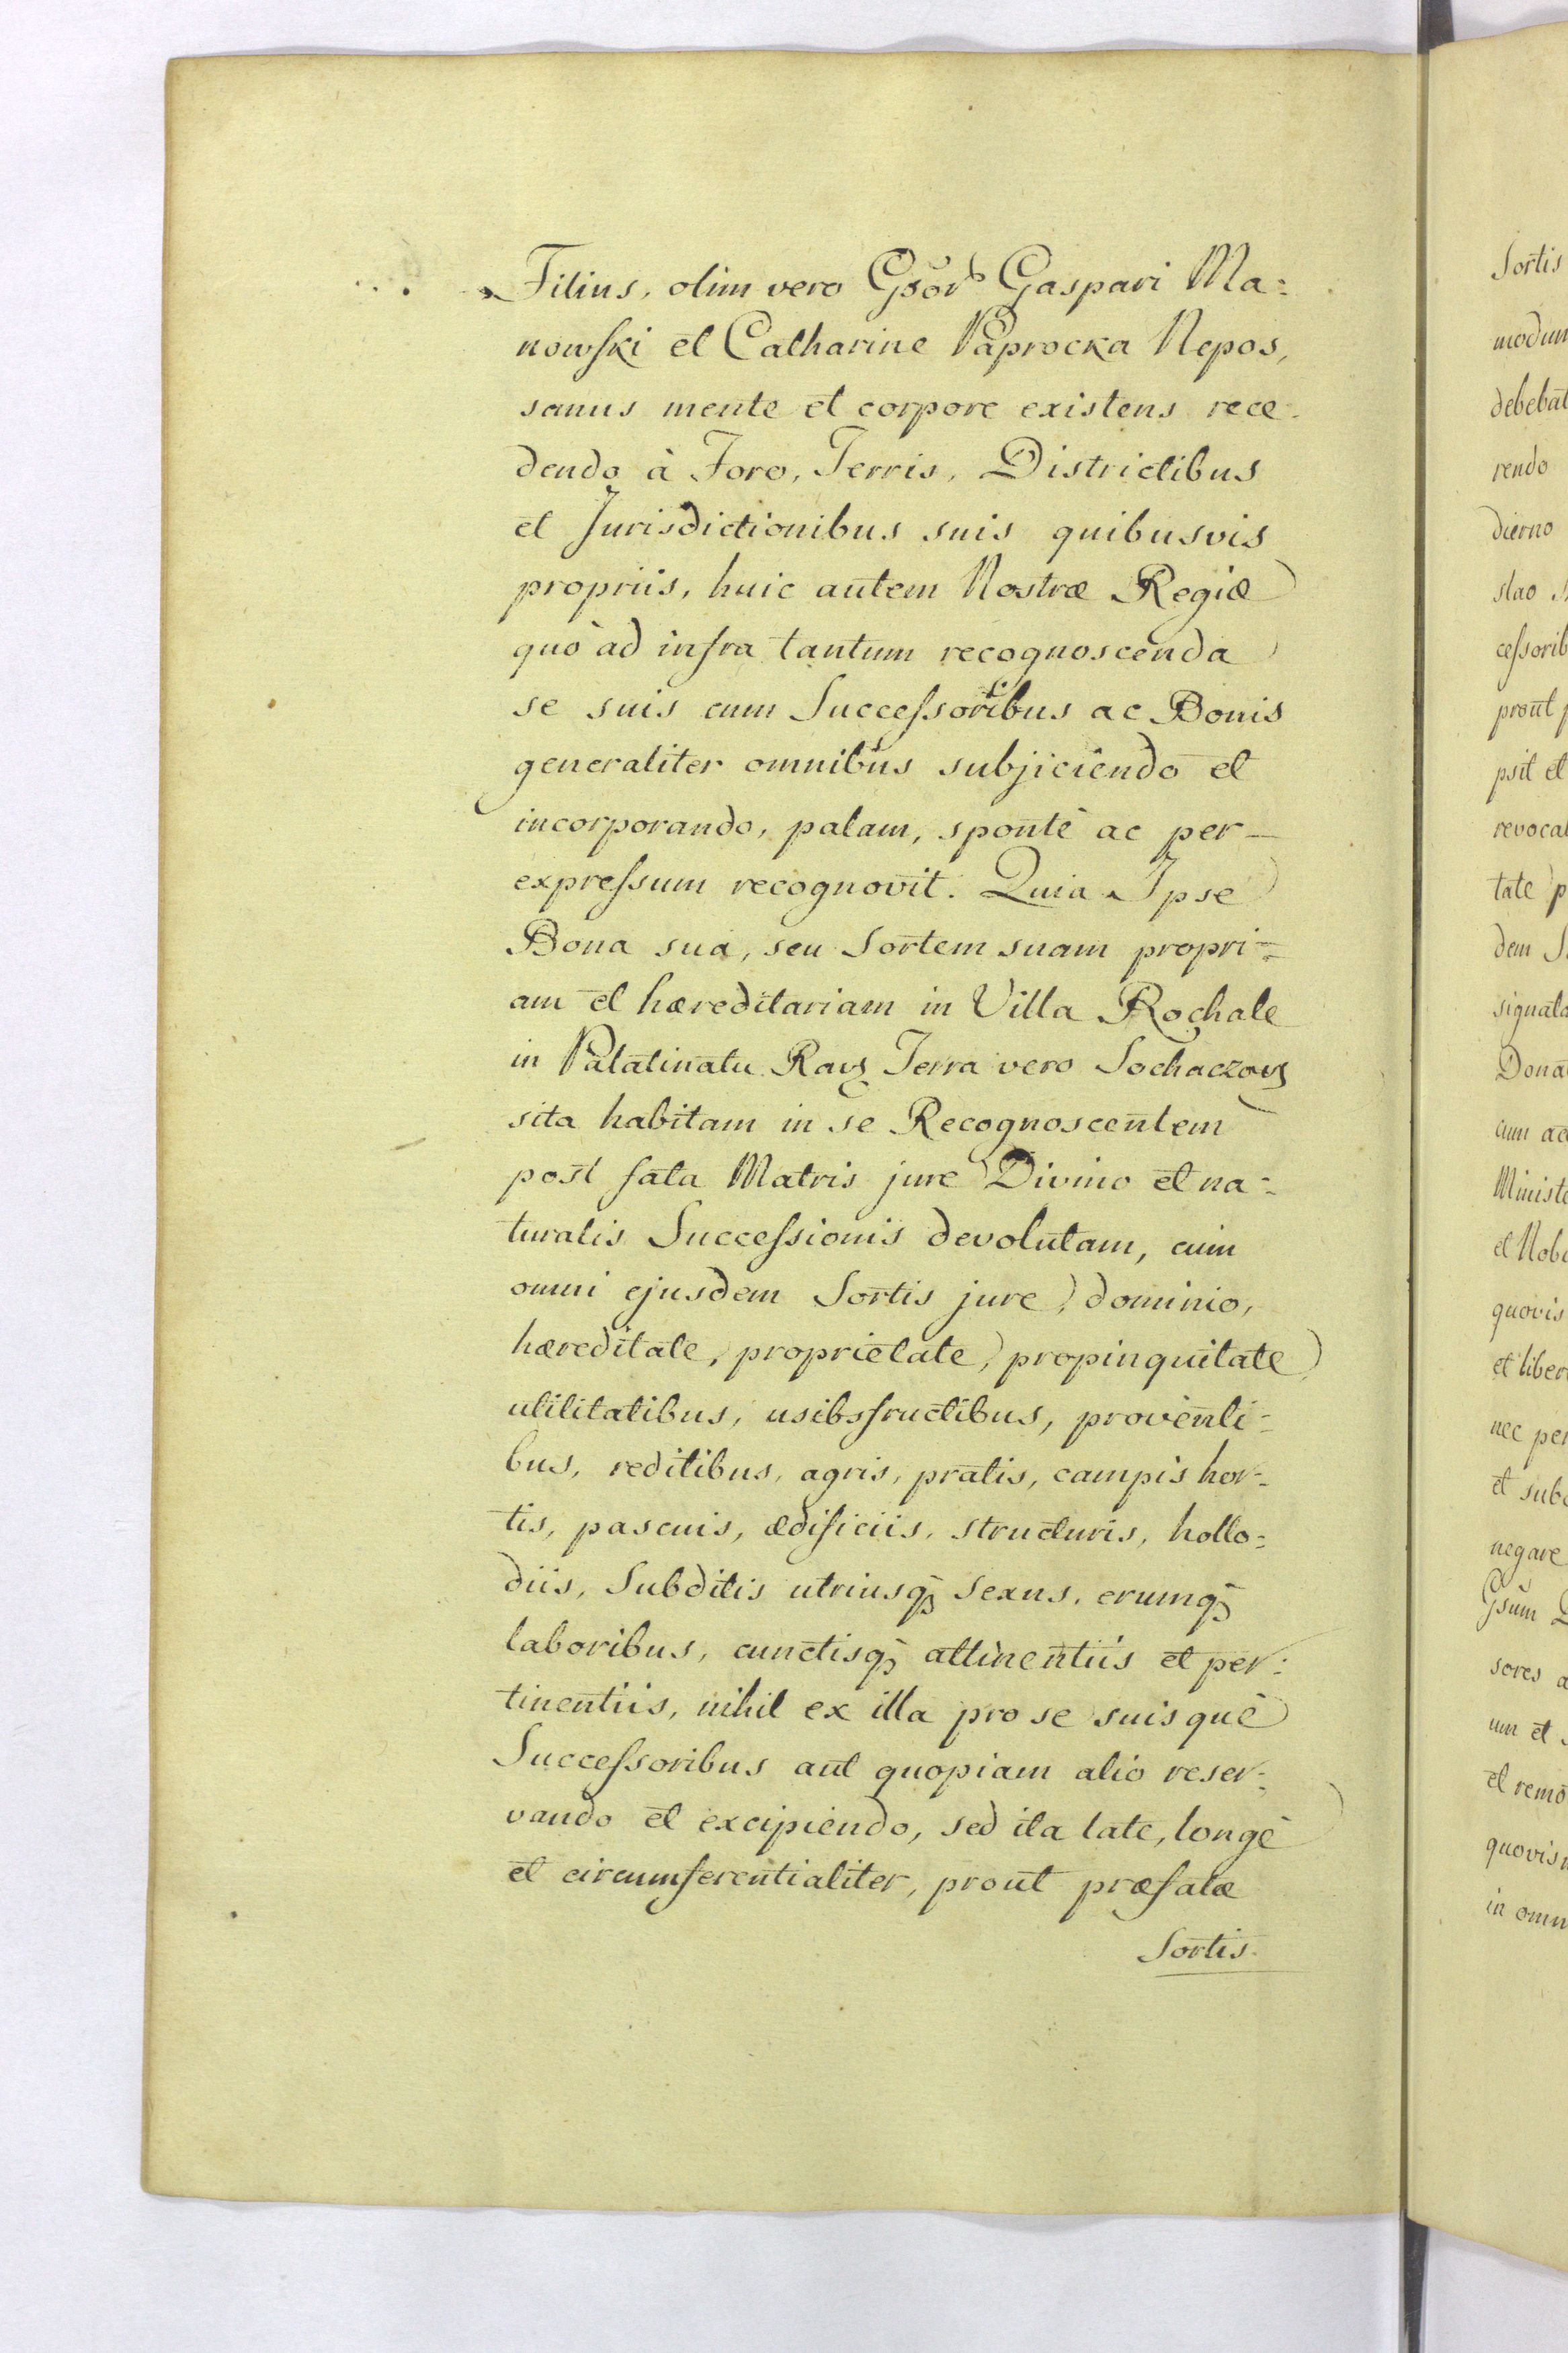 Filius, olim vero Gsõr Gaspari Ma:
nowski et Catharine Paprocka Nepos,
sanus mente et corpore existens rece-
dendo à Foro, Terris, Districtibus
et Jurisdictionibus suis quibusvis
propriis, huic autem Nostræ Regiæ
quò ad infra tantum recognoscenda
se suis cum Successoribus ac Bonis
generaliter omnibus subjiciendo et
incorporando, palam, spontè ac per-
expressum recognovit. Quia Ipse
Bona sua, seu Sortem suam propri-
am et hæreditariam in Villa Rochale
in Palatinatu Rav͛ Terra vero Sochaczov͛
sita habitam in se Recognoscentem
post fata Matris jure Divino et na-
turalis Successionis devolutam, cum
omni ejusdem Sortis jure, dominio,
hæreditate, proprietate, propinquitate
utilitatibus, usibsfructibus, proventi-
bus, reditibus, agris, pratis, campis hor-
tis, pascuis, ædificiis, structuris, hollo-
diis, Subditis utriusqꝫ Sexus, erumqꝫ
laboribus, cunctisqꝫ attinentiis et per-
tinentiis, nihil ex illa pro se suisquè
Successoribus aut quopiam alio reser-
vando et excipiendo, sed ita late, longè
et circumferentialiter, prout præfatæ
Sortis
Sortis
modum
debebat
rendo
dierno
slao
cessorib
prout
psit et
revocal
tate p
dem
signata
Dona
cum ac
Ministe
et Nob
quovis
et liber
nec per
et sub
negare
Gsum
sores a
um et
et remo
quovis
in omn